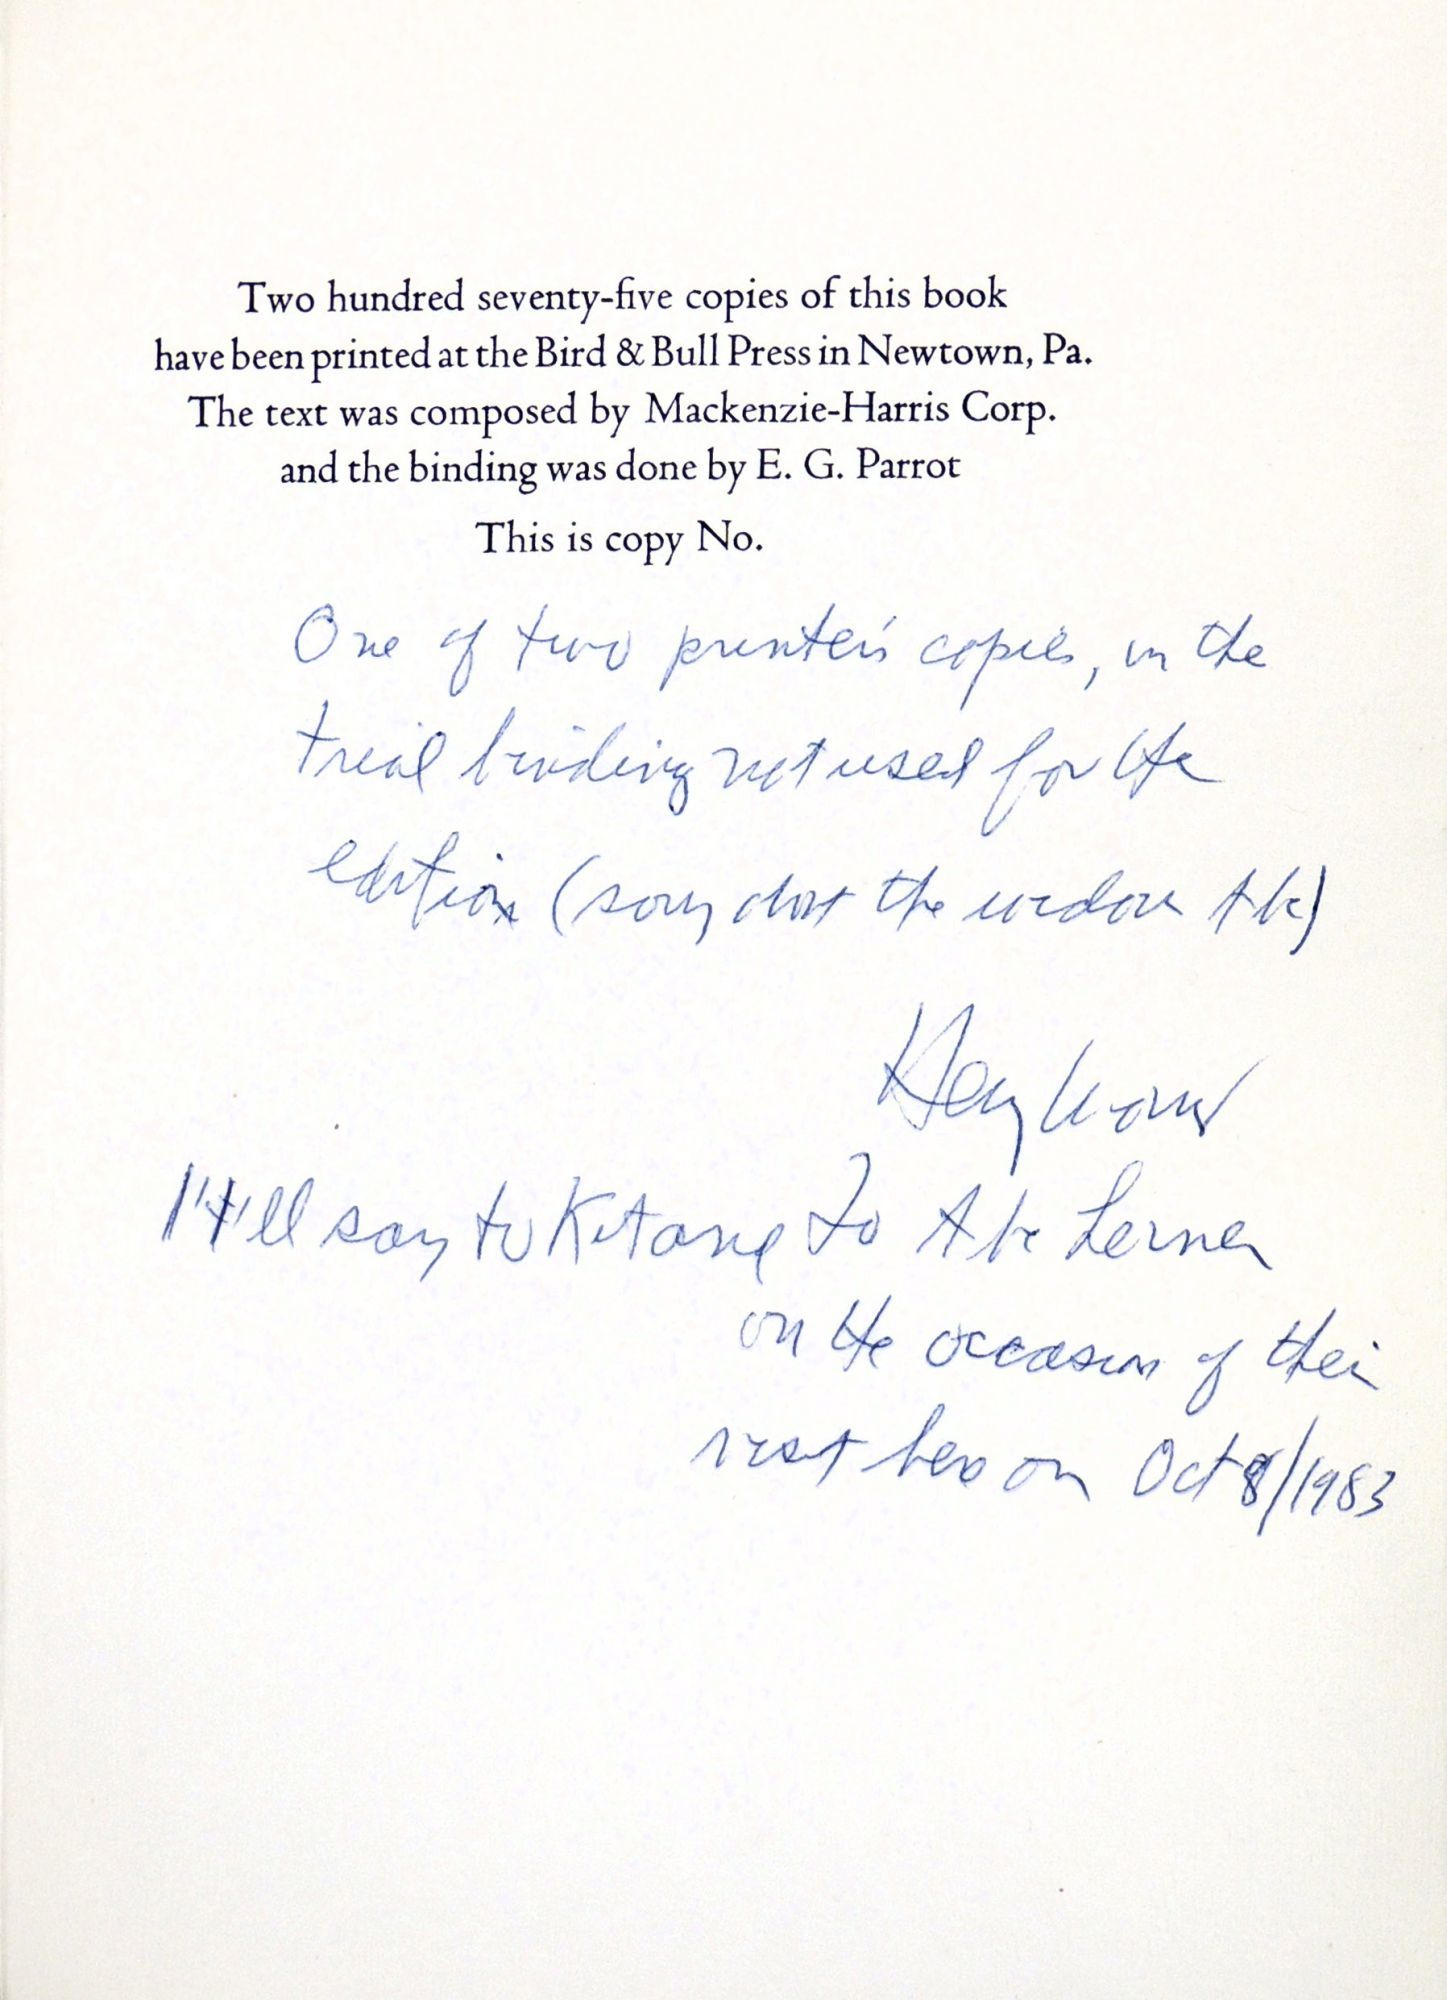 Two hundred seventy-five copies of this book
have been printed at the Bird & Bull Press in Newtown, Pa.
The text was composed by Mackenzie-Harris Corp.
and the binding was done by E. G. Parrot
This is copy No.
One of two printer's copies, in the
trial binding not used for the
edition (sorry about the window Abe)
Henry Morris
I'll say to Kit and To Abe Lerner
on the occasion of their
visit here on Oct 8/1983